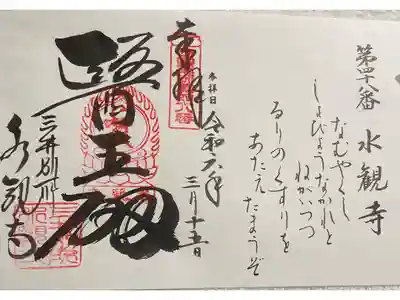 第四十八番 水観寺
なむやくし
しよびようなかれと
ねがいつつ
るりのくすりを
あたえたまうぞ
奉拝
参拝日
令和六年
三月十五日
醫王
三井別所
水観寺